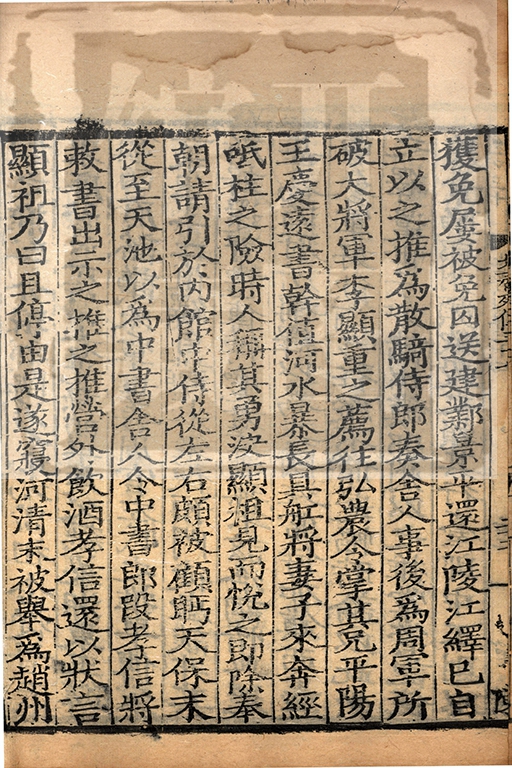 獲免屢被免囚送建鄴景平還江陵江繹已自
立以之推為散騎侍郎奏舍人事後為周軍所
破大將軍李顯重之薦往弘農令掌其兄平陽
王慶遠書幹值河水暴長具舡將妻子來奔經
砥柱之險時人稱其勇決顯祖見而悅之即除奉
朝請引於內館中侍從左右頗被顧眄天保末
從至天池以為中書舍人令中書郎段孝信將
敕書出示之推之推營外飲酒孝信還以狀言
顯祖乃曰且停由是遂寢河清末被舉為趙州